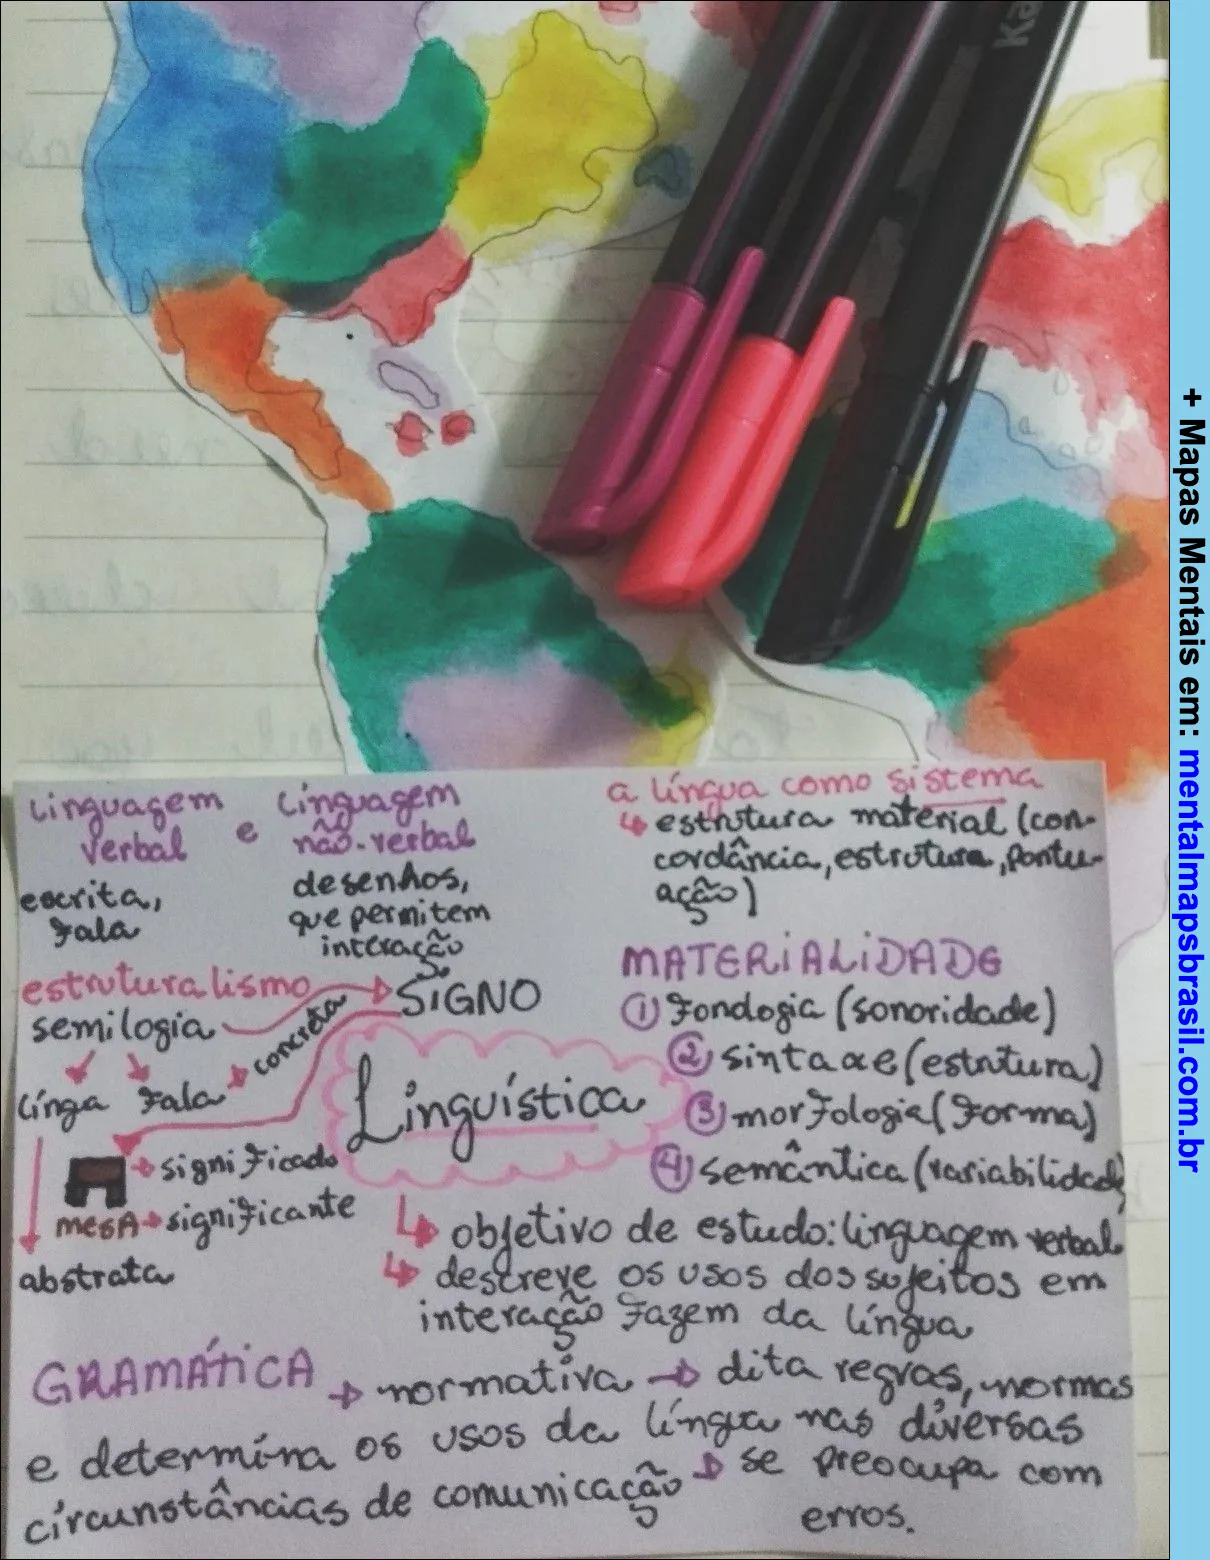 Ka
linguagem
verbal
e
linguagem
não-verbal
escrita,
fala
desenhos,
que permitem
interação
a língua como sistema
estrutura material (con-
cordância, estrutura, pontu-
ação)
MATERIALIDADE
① Fonologia (sonoridade)
② sintaxe (estrutura)
③ morfologia (Forma)
④ semântica (variabilidade)
estruturalismo
semilogia
SIGNO
concreta
línga fala
Linguística
significado
mesA significante
abstrata
objetivo de estudo: linguagem verbal
descreve os usos dos sujeitos em
interação fazem da língua
GRAMÁTICA normativa dita regras, normas
e determina os usos da língua nas diversas
circunstâncias de comunicação se preocupa com
erros.
+ Mapas Mentais em: mentalmapsbrasil.com.br